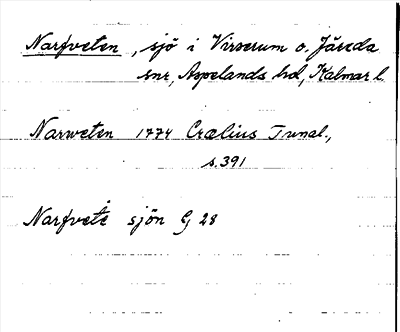 Narfveten, sjö i Virserum o. Järeda
snr, Aspelands hd, Kalmar l.
Narweten 1774 Crælius Tunal.,
s. 391
Narfvete sjön G 28